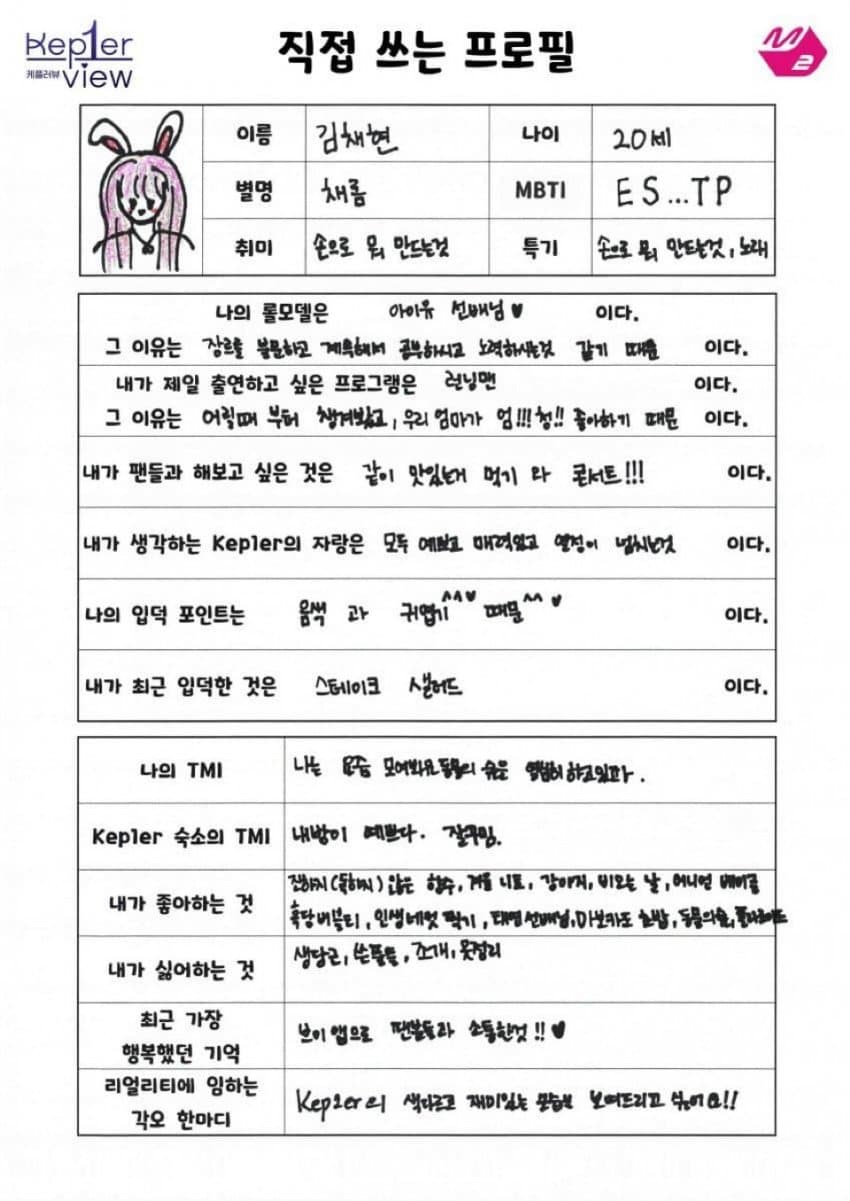 Kep1er
케플러뷰 view
직접 쓰는 프로필
M2
이름 김채현 나이 20세
별명 채롬 MBTI ES...TP
취미 손으로 뭐 만드는것 특기 손으로 뭐 만드는것, 노래
나의 롤모델은 아이유 선배님♥ 이다.
그 이유는 장르를 불문하고 계속해서 공부하시고 노력하시는것 같기 때문 이다.
내가 제일 출연하고 싶은 프로그램은 런닝맨 이다.
그 이유는 어릴때 부터 챙겨봤고, 우리 엄마가 엄!!!청!! 좋아하기 때문 이다.
내가 팬들과 해보고 싶은 것은 같이 맛있는거 먹기 와 콘서트!!! 이다.
내가 생각하는 Kep1er의 자랑은 모두 예쁘고 매력있고 열정이 넘치는것 이다.
나의 입덕 포인트는 음색 과 귀엽기^^♥ 때문^^♥ 이다.
내가 최근 입덕한 것은 스테이크 샐러드 이다.
나의 TMI 나는 요즘 모여봐요동물의 숲을 열심히 하고있다.
Kep1er 숙소의 TMI 내방이 예쁘다. 잘꾸밈.
내가 좋아하는 것 진하지(독하지) 않은 향수, 겨울 니트, 강아지, 비오는 날, 어니언 베이글
흑당버블티, 인생네컷 찍기, 태연선배님, 아보카도 초밥, 동물의숲, 폴라로이드
내가 싫어하는 것 생당근, 쓴풀들, 조개, 옷정리
최근 가장
행복했던 기억 브이앱으로 팬분들과 소통한것!!♥
리얼리티에 임하는
각오 한마디 Kep1er의 색다르고 재미있는 모습을 보여드리고 싶어요!!